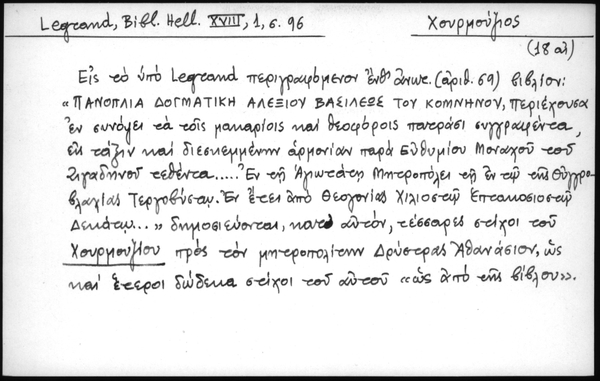 Legrand, Bibl. Hell. XVIII, 1, σ. 96
Χουρμούζιος
(18 αἰ)
Εἰς τὸ ὑπὸ Legrand περιγραφόμενον ἐνθ' ἀνωτ. (ἀριθ. 69) βιβλίον:
«ΠΑΝΟΠΛΙΑ ΔΟΓΜΑΤΙΚΗ ΑΛΕΞΙΟΥ ΒΑΣΙΛΕΩΣ ΤΟΥ ΚΟΜΝΗΝΟΥ, περιέχουσα
ἐν συνόψει τὰ τοῖς μακαρίοις καὶ θεοφόροις πατράσι συγγραφέντα,
εἰς τάξιν καὶ διεσκεμμένην ἁρμονίαν παρὰ Εὐθυμίου Μοναχοῦ τοῦ
Ζιγαδηνοῦ τεθέντα..... Ἐν τῇ Ἁγιωτάτῃ Μητροπόλει τῇ ἐν τῇ τῆς Οὐγγρο-
βλαχίας Τεργοβύστῳ. Ἐν ἔτει ἀπὸ Θεογονίας Χιλιοστῷ Ἑπτακοσιοστῷ
Δεκάτῳ...» δημοσιεύονται, κατ' αὐτόν, τέσσαρες στίχοι τοῦ
Χουρμουζίου πρὸς τὸν μητροπολίτην Δρύστρας Ἀθανάσιον, ὡς
καὶ ἕτεροι δώδεκα στίχοι τοῦ αὐτοῦ «ὡς ἀπὸ τῆς βίβλου».